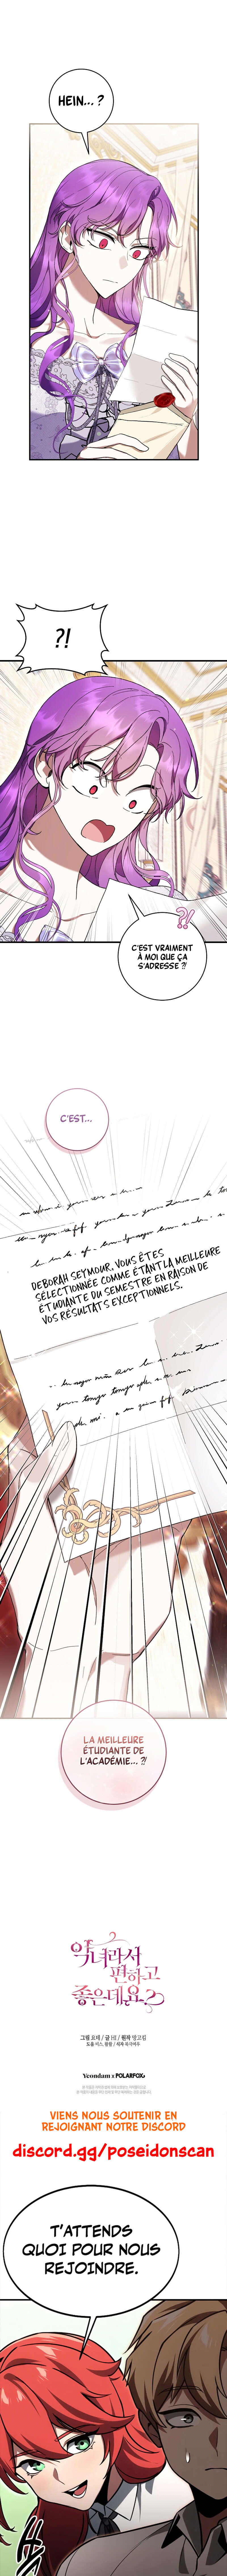 HEIN... ?
?!
?!
C'EST VRAIMENT
À MOI QUE ÇA
S'ADRESSE ?!
C'EST...
DEBORAH SEYMOUR, VOUS ÊTES
SÉLECTIONNÉE COMME ÉTANT LA MEILLEURE
ÉTUDIANTE DU SEMESTRE EN RAISON DE
VOS RÉSULTATS EXCEPTIONNELS.
LA MEILLEURE
ÉTUDIANTE DE
L'ACADÉMIE... ?!
악녀라서
편하고
좋은데요?
Yeondam x POLARFOX
VIENS NOUS SOUTENIR EN
REJOIGNANT NOTRE DISCORD
discord.gg/poseidonscan
T'ATTENDS
QUOI POUR NOUS
REJOINDRE.